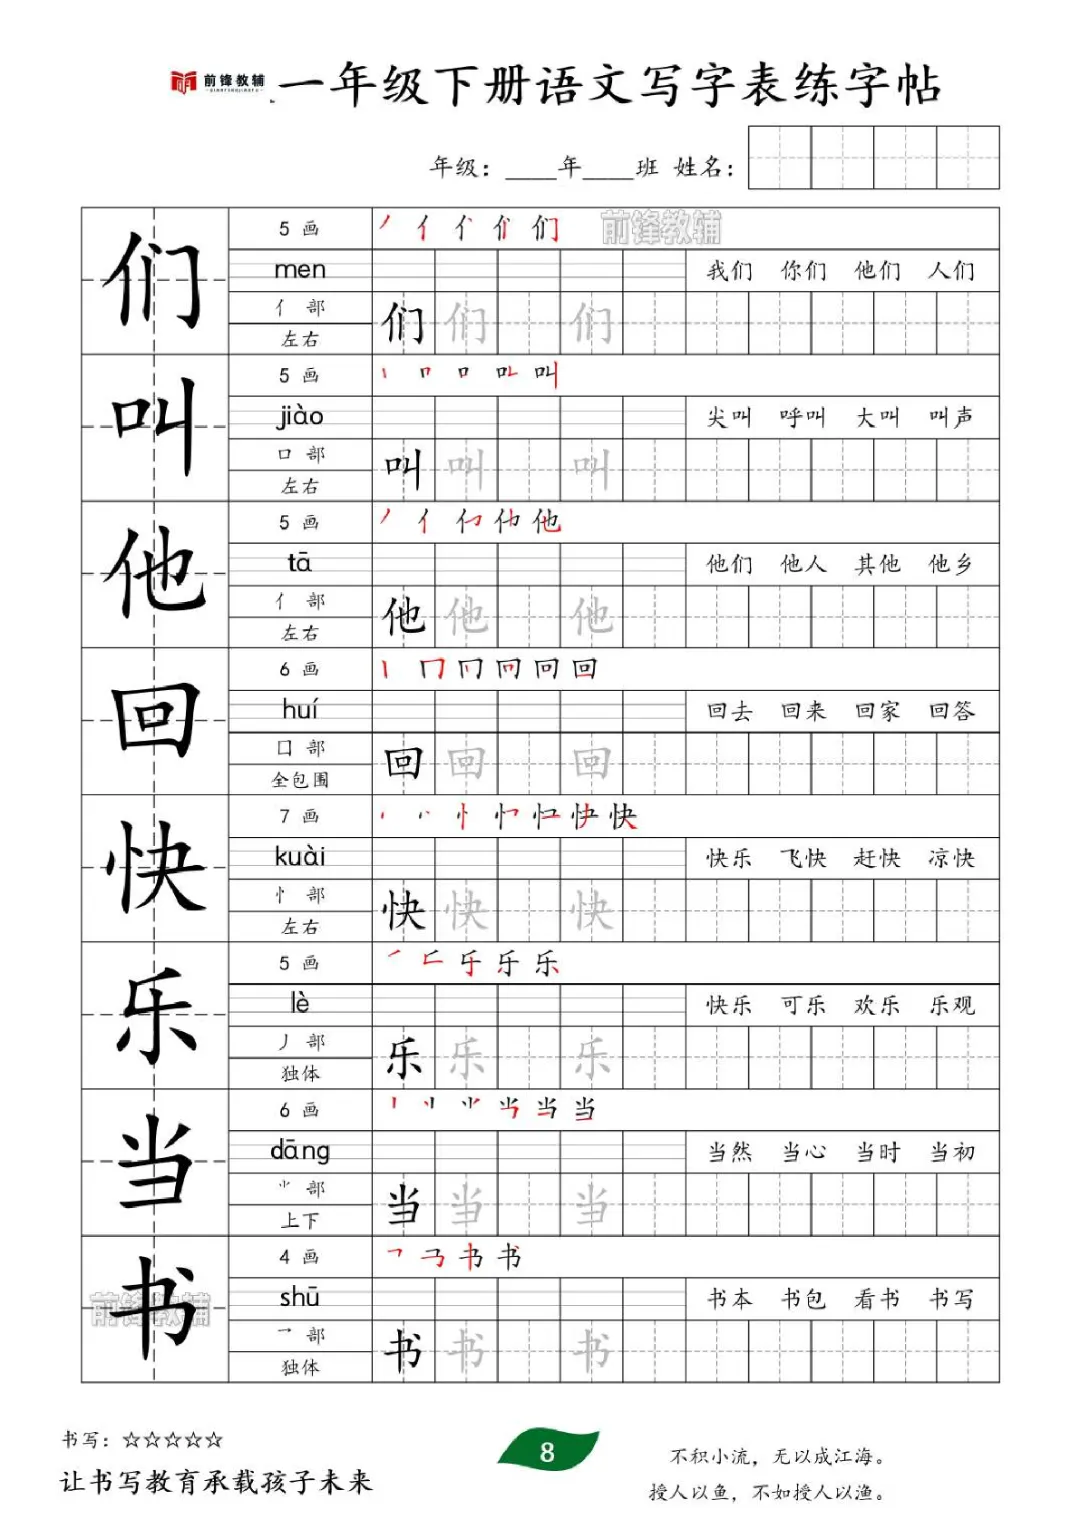 前锋教辅 一年级下册语文写字表练字帖
年级：____年____班 姓名：
们
5 画
前锋教辅
men
我们 你们 他们 人们
亻 部
左右
们 们 们
叫
5 画
jiào
尖叫 呼叫 大叫 叫声
口 部
左右
叫 叫 叫
他
5 画
tā
他们 他人 其他 他乡
亻 部
左右
他 他 他
回
6 画
huí
回去 回来 回家 回答
囗 部
全包围
回 回 回
快
7 画
kuài
快乐 飞快 赶快 凉快
忄 部
左右
快 快 快
乐
5 画
lè
快乐 可乐 欢乐 乐观
丿 部
独体
乐 乐 乐
当
6 画
dāng
当然 当心 当时 当初
⺌ 部
上下
当 当 当
书
前锋教辅
4 画
shū
书本 书包 看书 书写
乛 部
独体
书 书 书
书写：☆☆☆☆☆
让书写教育承载孩子未来
8
不积小流，无以成江海。
授人以鱼，不如授人以渔。